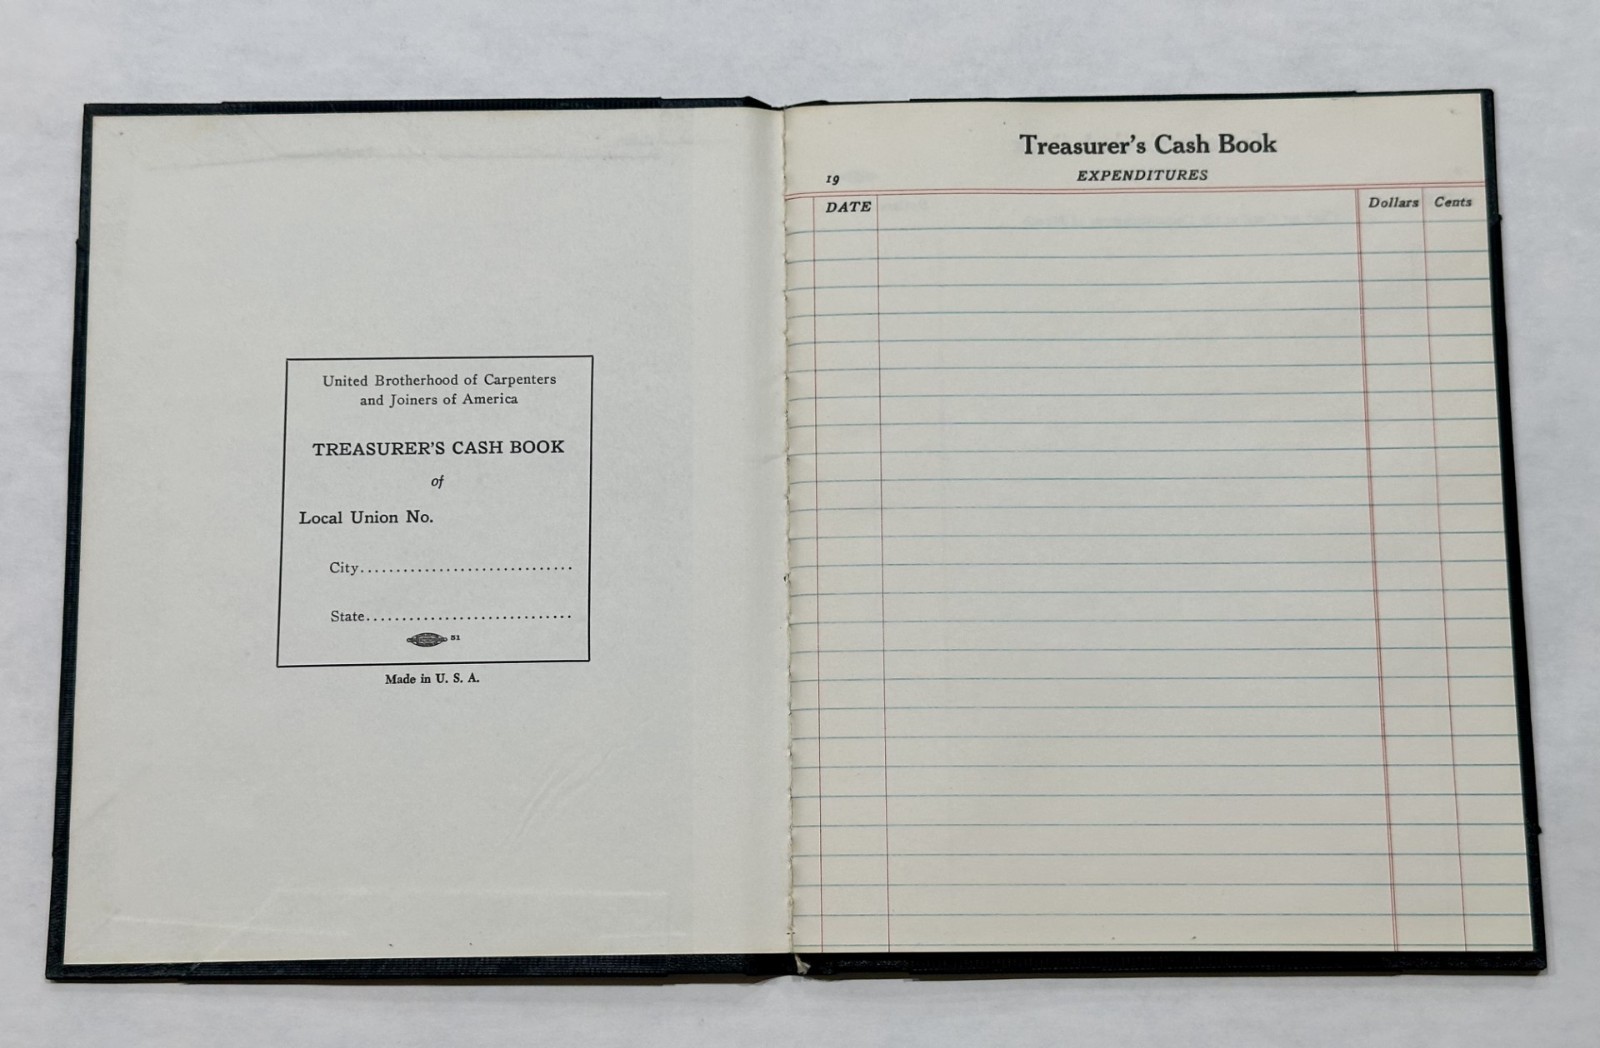 United Brotherhood of Carpenters
and Joiners of America
TREASURER'S CASH BOOK
of
Local Union No.
City..............................
State.............................
51
Made in U. S. A.
Treasurer's Cash Book
EXPENDITURES
19
DATE
Dollars
Cents